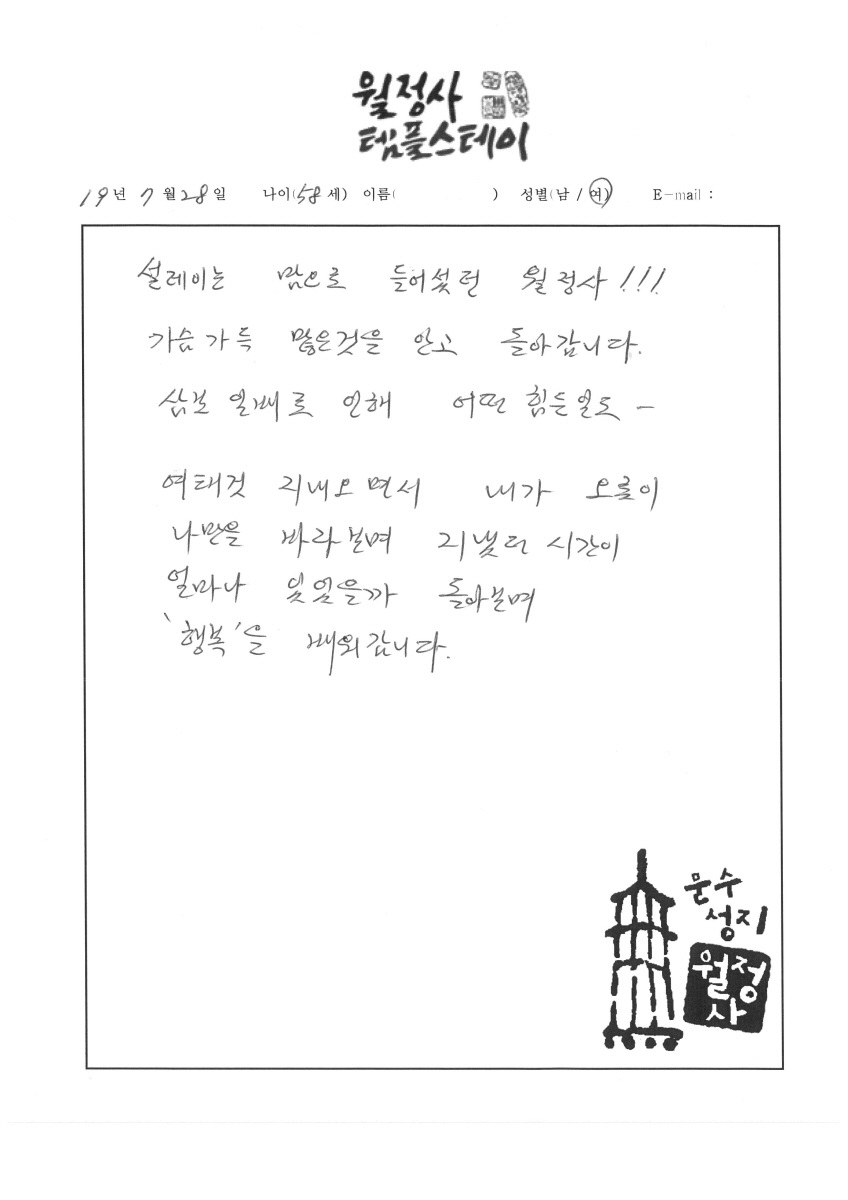 월정사
템플스테이
19년 7월 28일 나이(58세) 이름( ) 성별(남 / 여) E-mail :
설레이는 맘으로 들어섰던 월정사!!!
가슴가득 많은것을 안고 돌아갑니다.
삼보일배로 인해 어떤 힘든일도 -
여태것 지내오면서 내가 오롯이
나만을 바라보며 지냈던 시간이
얼마나 있었을까 돌아보며
'행복'을 배워갑니다.
문수
성지
월정
사